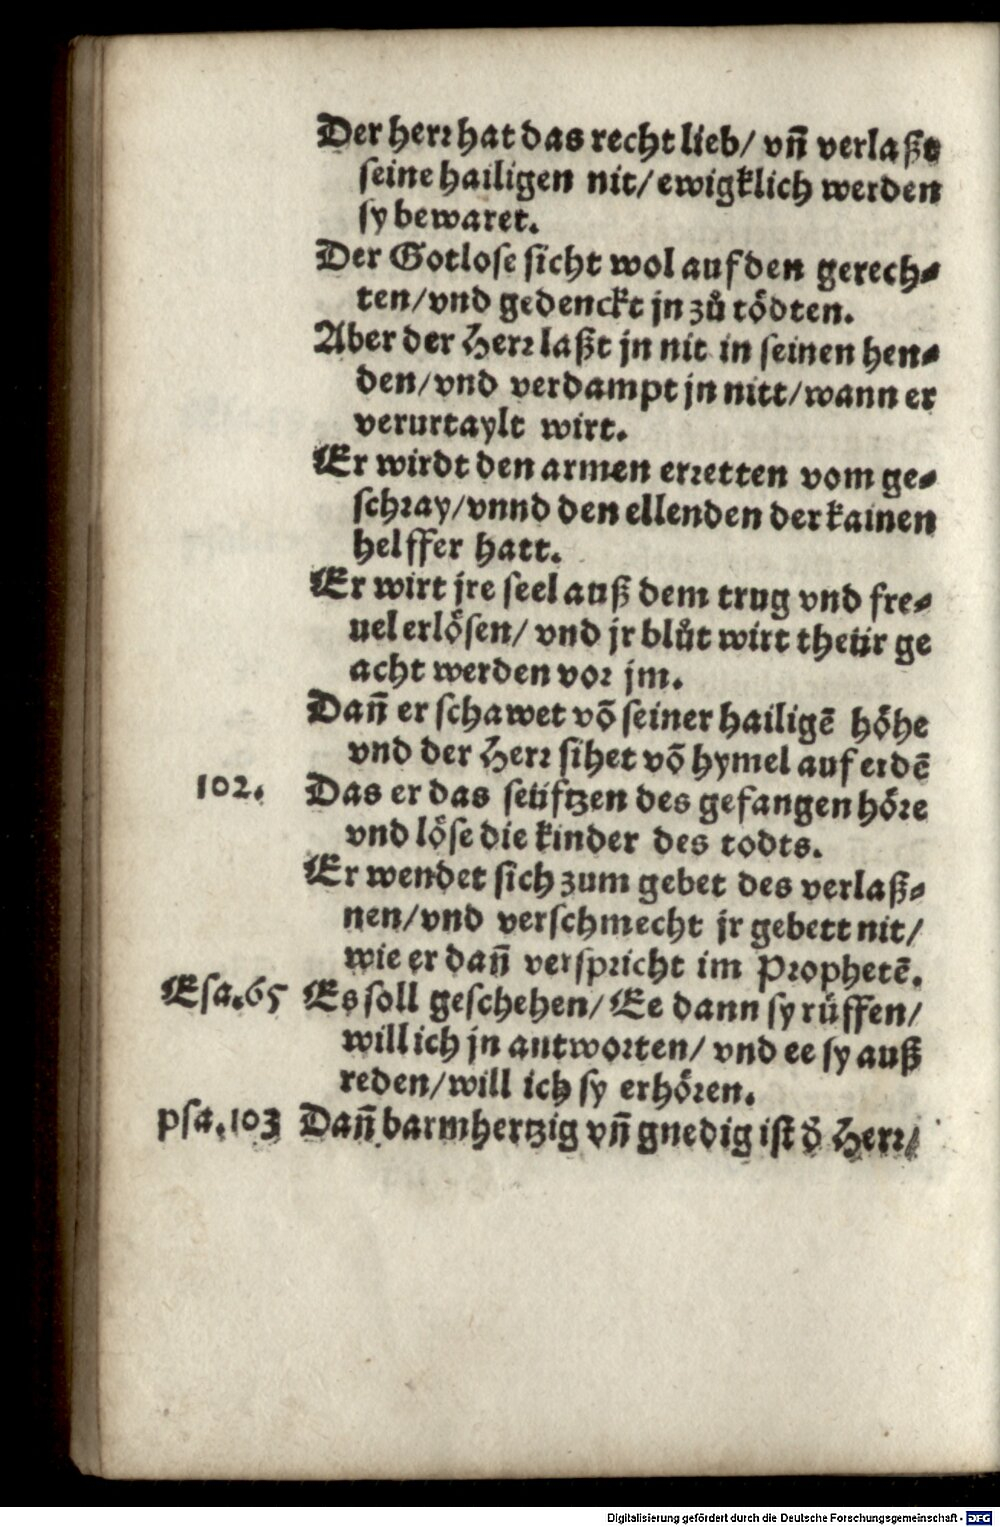 Der herr hat das recht lieb/ vñ verlaßt
seine hailigen nit/ ewigklich werden
sy bewaret.
Der Gotlose sicht wol auf den gerech⸗
ten/vnd gedenckt jn zů tödten.
Aber der Herr laßt jn nit in seinen hen⸗
den/vnd verdampt jn nitt/wann er
verurtaylt wirt.
Er wirdt den armen erretten vom ge⸗
schray/vnnd den ellenden der kainen
helffer hatt.
Er wirt jre seel auß dem trug vnd fre⸗
uel erlösen/ vnd jr blůt wirt theür ge
acht werden vor jm.
Dañ er schawet võ seiner hailigē höhe
vnd der Herr sihet võ hymel auf erdē
102. Das er das seüftzen des gefangen höre
vnd löse die kinder des todts.
Er wendet sich zum gebet des verlaß⸗
nen/vnd verschmecht jr gebett nit/
wie er dañ verspricht im Prophetē.
Esa.65 Es soll geschehen/ Ee dann sy rüffen/
will ich jn antworten/ vnd ee sy auß
reden/will ich sy erhören.
psa.103 Dañ barmhertzig vñ gnedig ist d̄ Herr/
Digitalisierung gefördert durch die Deutsche Forschungsgemeinschaft - DFG